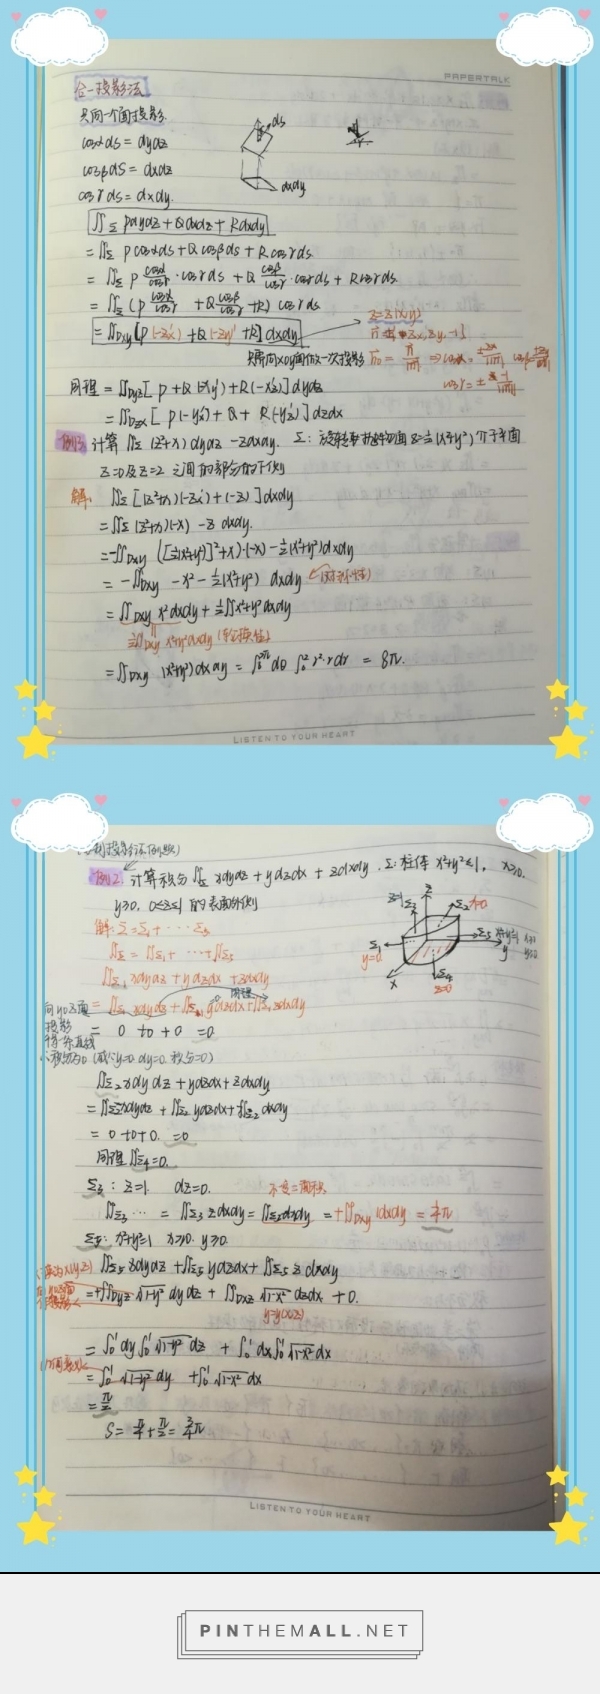 PAPERTALK
合一投影法
只向一个面投影
cosαds = dydz
cosβds = dxdz
cosγds = dxdy.
ds
dxdy
∬Σ Pdydz + Qdxdz + Rdxdy
= ∬Σ Pcosαds + Qcosβds + Rcosγds
= ∬Σ P cosα/cosγ · cosγds + Q cosβ/cosγ · cosγds + Rcosγds
= ∬Σ (P cosα/cosγ + Q cosβ/cosγ + R) cosγds
= ∬Dxy [P(-Zx') + Q(-Zy') + R] dxdy
z=z(x,y)
只需向xoy面做一次投影
同理 = ∬Dyz [P + Q(-Xy') + R(-Xz')] dydz
= ∬Dzx [P(-Yx') + Q + R(-Yz')] dzdx
例3. 计算 ∬Σ (z²+x) dydz - zdxdy. Σ: 旋转抛物面 z=½(x²+y²) 介于平面
z=0及z=2之间的部分的下侧
解: ∬Σ [(z²+x)(-Zx') + (-z)] dxdy
= ∬Σ (z²+x)(-x) - z dxdy.
= -∬Dxy ([½(x²+y²)]²+x)·(-x) - ½(x²+y²) dxdy
= -∬Dxy -x² - ½(x²+y²) dxdy (对称性)
= ∬Dxy x²dxdy + ½∬x²+y²dxdy
½∬Dxy x²+y²dxdy (轮换性)
= ∬Dxy (x²+y²) dxdy = ∫₀^2π dθ ∫₀² r²·r dr = 8π.
LISTEN TO YOUR HEART
例2. 计算积分 ∬Σ xdydz + ydzdx + zdxdy. Σ: 柱体 x²+y²≤1, x≥0.
y≥0. 0≤z≤1 的表面外侧
解: Σ=Σ₁+ ⋯ Σ₅
∬Σ = ∬Σ₁ + ⋯ + ∬Σ₅
∬Σ₁ xdydz + ydzdx + zdxdy
同理
= ∬Σ₁ xdydz + ∬Σ₁ ydzdx + ∬Σ₁ zdxdy
= 0 + 0 + 0 = 0
向yoz面
投影
得一条直线
∴积分为0 (或∵y=0. dy=0. 积分=0)
z=1
Σ₃
Σ₂ x=0
Σ₁
y=0
Σ₅
Σ₄
z=0
x
y
z
∬Σ₂ xdydz + ydzdx + zdxdy
= ∬Σ₂ xdydz + ∬Σ₂ ydzdx + ∬Σ₂ zdxdy
= 0 + 0 + 0. = 0
同理 ∬Σ₄=0.
Σ₃: z=1. dz=0.
∬Σ₃ ⋯ = ∬Σ₃ zdxdy = ∬Σ₃ dxdy = +∬Dxy 1dxdy = ¼π
Σ₅: x²+y²=1 x≥0. y≥0.
∬Σ₅ xdydz + ∬Σ₅ ydzdx + ∬Σ₅ z dxdy
= +∬Dyz √1-y² dydz + ∬Dxz √1-x² dzdx + 0.
y=y(x,z)
= ∫₀¹ dy ∫₀¹ √1-y² dz + ∫₀¹ dx ∫₀¹ √1-x² dz
= ∫₀¹ √1-y² dy + ∫₀¹ √1-x² dx
= π/2
S = π/4 + π/2 = ¾π
LISTEN TO YOUR HEART
PINTHEMALL.NET